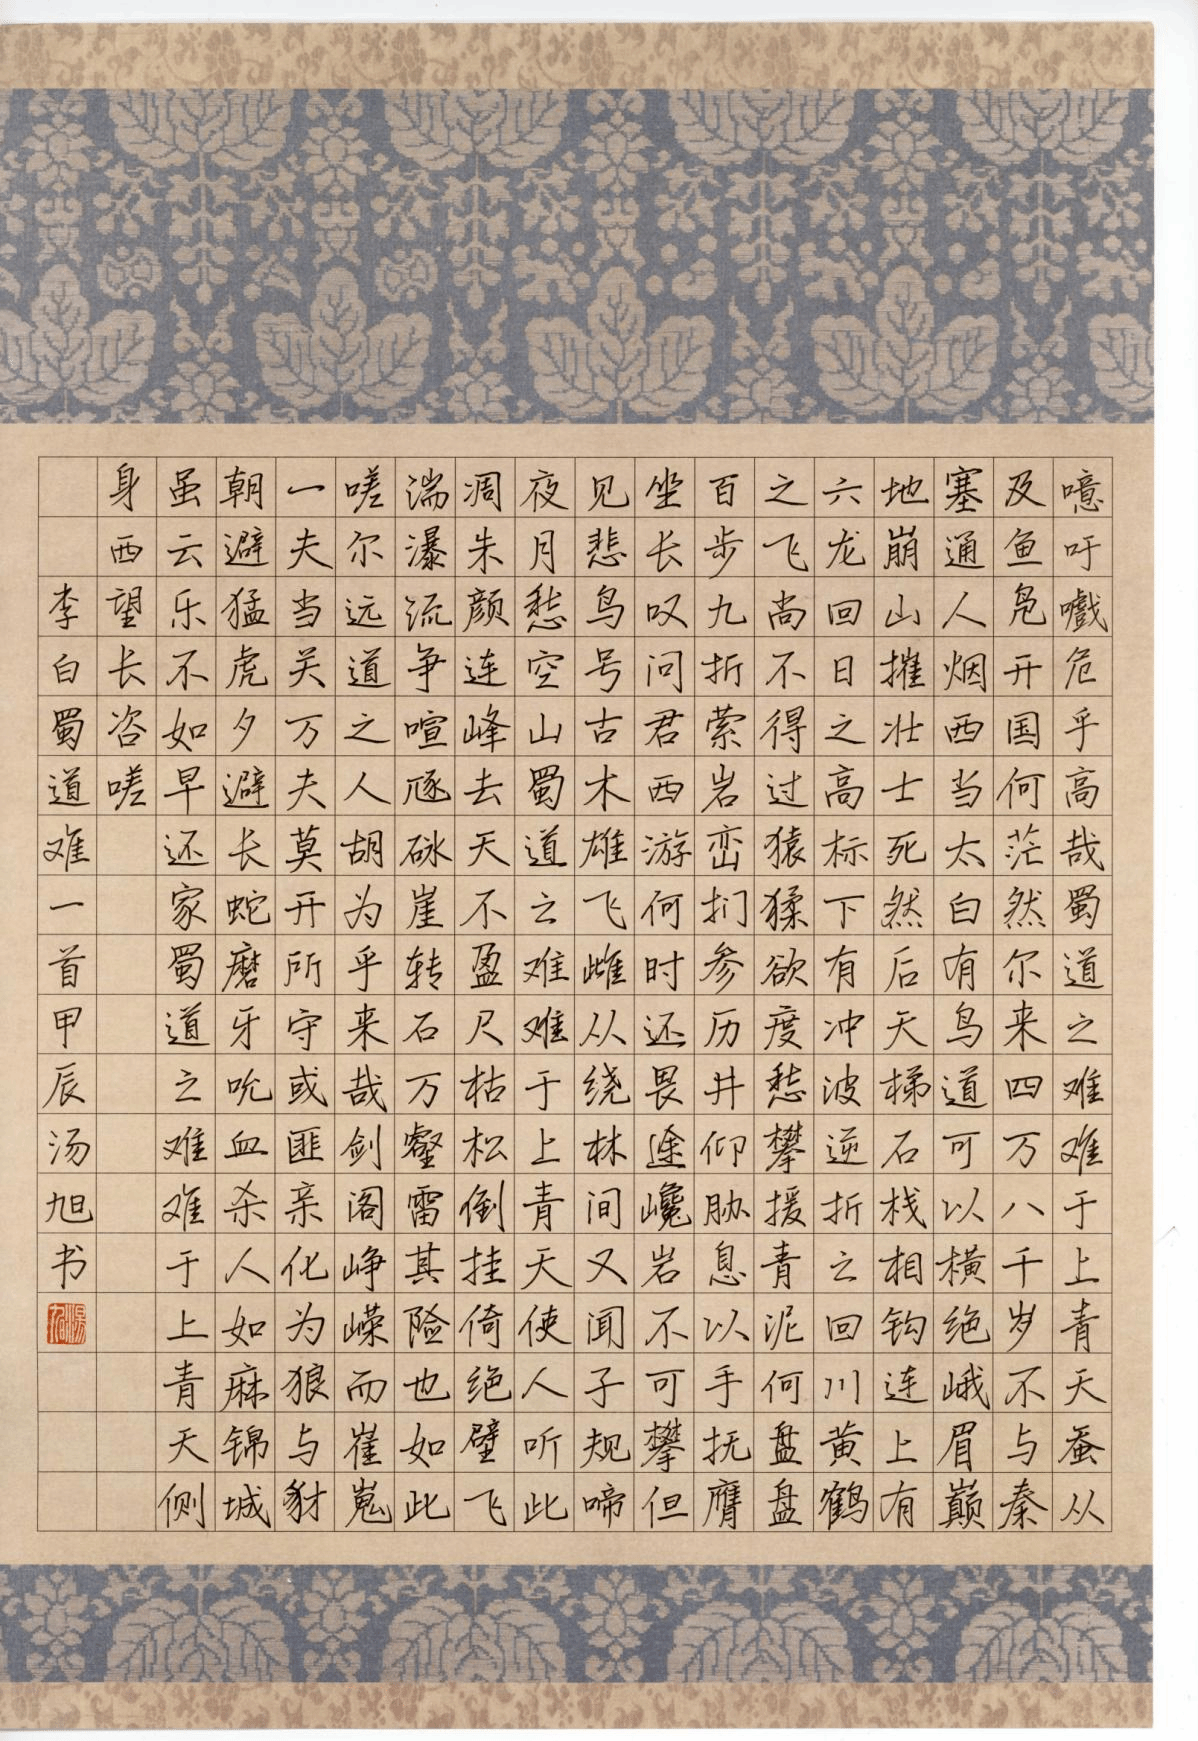 噫吁嚱危乎高哉蜀道之难难于上青天蚕从
及鱼凫开国何茫然尔来四万八千岁不与秦
塞通人烟西当太白有鸟道可以横绝峨眉巅
地崩山摧壮士死然后天梯石栈相钩连上有
六龙回日之高标下有冲波逆折之回川黄鹤
之飞尚不得过猿猱欲度愁攀援青泥何盘盘
百步九折萦岩峦扪参历井仰胁息以手抚膺
坐长叹问君西游何时还畏途巉岩不可攀但
见悲鸟号古木雄飞雌从绕林间又闻子规啼
夜月愁空山蜀道之难难于上青天使人听此
凋朱颜连峰去天不盈尺枯松倒挂倚绝壁飞
湍瀑流争喧豗砯崖转石万壑雷其险也如此
嗟尔远道之人胡为乎来哉剑阁峥嵘而崔嵬
一夫当关万夫莫开所守或匪亲化为狼与豺
朝避猛虎夕避长蛇磨牙吮血杀人如麻锦城
虽云乐不如早还家蜀道之难难于上青天侧
身西望长咨嗟
李白蜀道难一首甲辰汤旭书
湯旭